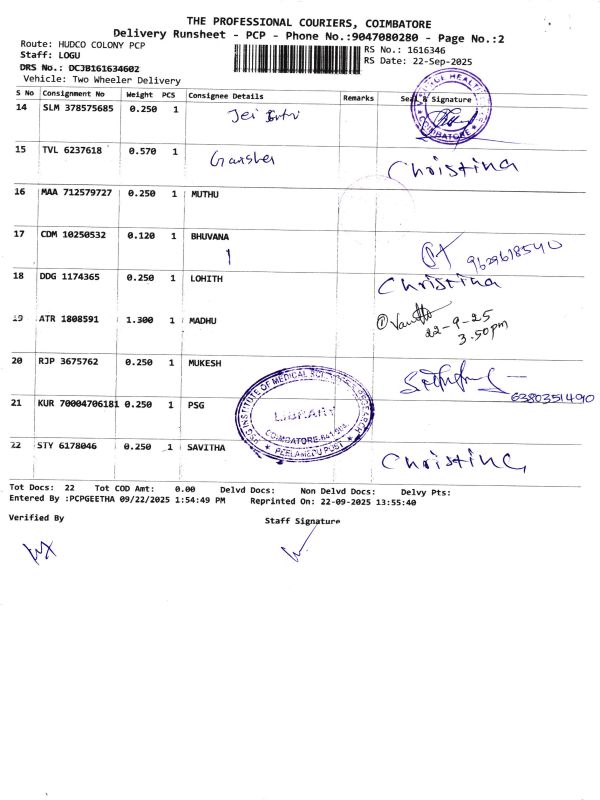 THE PROFESSIONAL COURIERS, COIMBATORE
Delivery Runsheet - PCP - Phone No.:9047080280 - Page No.:2
Route: HUDCO COLONY PCP
Staff: LOGU
DRS No.: DCJB161634602
Vehicle: Two Wheeler Delivery
RS No.: 1616346
RS Date: 22-Sep-2025
S No Consignment No Weight PCS Consignee Details Remarks Seal & Signature
14 SLM 378575685 0.250 1
COIMBATORE
15 TVL 6237618 0.570 1 Ganesher Christina
16 MAA 712579727 0.250 1 MUTHU
17 CDM 10250532 0.120 1 BHUVANA
9629618540
18 DDG 1174365 0.250 1 LOHITH Christina
19 ATR 1808591 1.300 1 MADHU
22-9-25
3.50pm
20 RJP 3675762 0.250 1 MUKESH
6380351490
21 KUR 70004706181 0.250 1 PSG
PSG INSTITUTE OF MEDICAL SCIENCES & RESEARCH
LIBRARY
COIMBATORE-641 004.
PEELAMEDU POST
22 STY 6178046 0.250 1 SAVITHA Christina
Tot Docs: 22 Tot COD Amt: 0.00 Delvd Docs: Non Delvd Docs: Delvy Pts:
Entered By :PCPGEETHA 09/22/2025 1:54:49 PM Reprinted On: 22-09-2025 13:55:40
Verified By Staff Signature